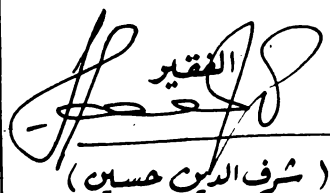 الفقير
( شرف الدين حسين )